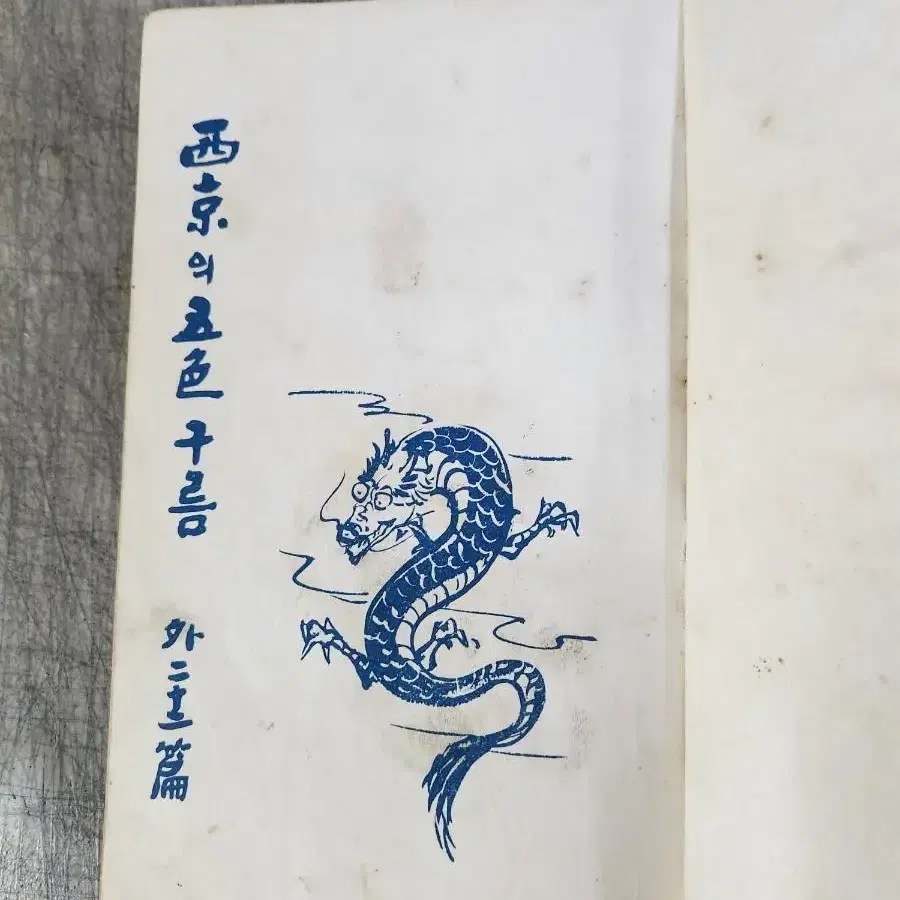 西京의 五色 구름
外二十二篇